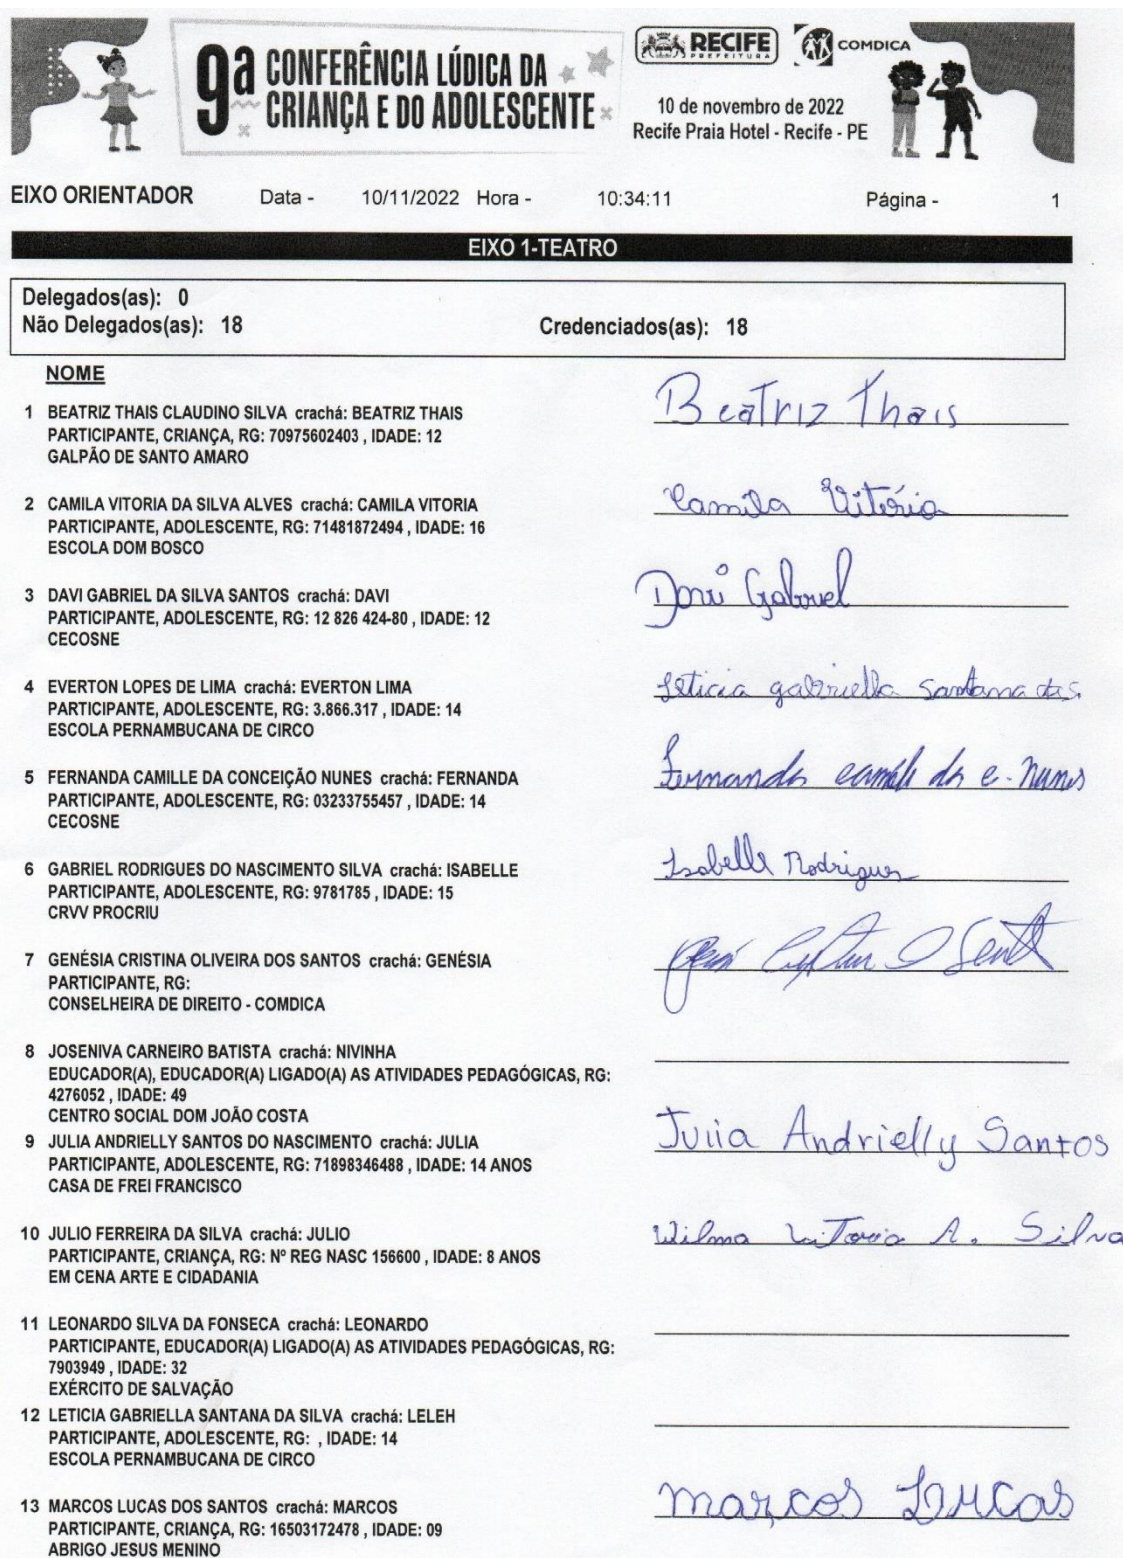 9ª CONFERÊNCIA LÚDICA DA
CRIANÇA E DO ADOLESCENTE
RECIFE
PREFEITURA
COMDICA
10 de novembro de 2022
Recife Praia Hotel - Recife - PE
EIXO ORIENTADOR Data - 10/11/2022 Hora - 10:34:11 Página - 1
EIXO 1-TEATRO
Delegados(as): 0
Não Delegados(as): 18 Credenciados(as): 18
NOME
1 BEATRIZ THAIS CLAUDINO SILVA crachá: BEATRIZ THAIS
Beatriz Thais
PARTICIPANTE, CRIANÇA, RG: 70975602403 , IDADE: 12
GALPÃO DE SANTO AMARO
2 CAMILA VITORIA DA SILVA ALVES crachá: CAMILA VITORIA
Camila Vitória
PARTICIPANTE, ADOLESCENTE, RG: 71481872494 , IDADE: 16
ESCOLA DOM BOSCO
3 DAVI GABRIEL DA SILVA SANTOS crachá: DAVI
Davi Gabriel
PARTICIPANTE, ADOLESCENTE, RG: 12 826 424-80 , IDADE: 12
CECOSNE
4 EVERTON LOPES DE LIMA crachá: EVERTON LIMA
Leticia gabriella Santana da S.
PARTICIPANTE, ADOLESCENTE, RG: 3.866.317 , IDADE: 14
ESCOLA PERNAMBUCANA DE CIRCO
5 FERNANDA CAMILLE DA CONCEIÇÃO NUNES crachá: FERNANDA
Fernanda camille da c. Nunes
PARTICIPANTE, ADOLESCENTE, RG: 03233755457 , IDADE: 14
CECOSNE
6 GABRIEL RODRIGUES DO NASCIMENTO SILVA crachá: ISABELLE
Isabelle Rodrigues
PARTICIPANTE, ADOLESCENTE, RG: 9781785 , IDADE: 15
CRVV PROCRIU
7 GENÉSIA CRISTINA OLIVEIRA DOS SANTOS crachá: GENÉSIA
PARTICIPANTE, RG:
CONSELHEIRA DE DIREITO - COMDICA
8 JOSENIVA CARNEIRO BATISTA crachá: NIVINHA
EDUCADOR(A), EDUCADOR(A) LIGADO(A) AS ATIVIDADES PEDAGÓGICAS, RG:
4276052 , IDADE: 49
CENTRO SOCIAL DOM JOÃO COSTA
9 JULIA ANDRIELLY SANTOS DO NASCIMENTO crachá: JULIA
Julia Andrielly Santos
PARTICIPANTE, ADOLESCENTE, RG: 71898346488 , IDADE: 14 ANOS
CASA DE FREI FRANCISCO
10 JULIO FERREIRA DA SILVA crachá: JULIO
Wilma Vitoria A. Silva
PARTICIPANTE, CRIANÇA, RG: Nº REG NASC 156600 , IDADE: 8 ANOS
EM CENA ARTE E CIDADANIA
11 LEONARDO SILVA DA FONSECA crachá: LEONARDO
PARTICIPANTE, EDUCADOR(A) LIGADO(A) AS ATIVIDADES PEDAGÓGICAS, RG:
7903949 , IDADE: 32
EXÉRCITO DE SALVAÇÃO
12 LETICIA GABRIELLA SANTANA DA SILVA crachá: LELEH
PARTICIPANTE, ADOLESCENTE, RG: , IDADE: 14
ESCOLA PERNAMBUCANA DE CIRCO
13 MARCOS LUCAS DOS SANTOS crachá: MARCOS
marcos Lucas
PARTICIPANTE, CRIANÇA, RG: 16503172478 , IDADE: 09
ABRIGO JESUS MENINO